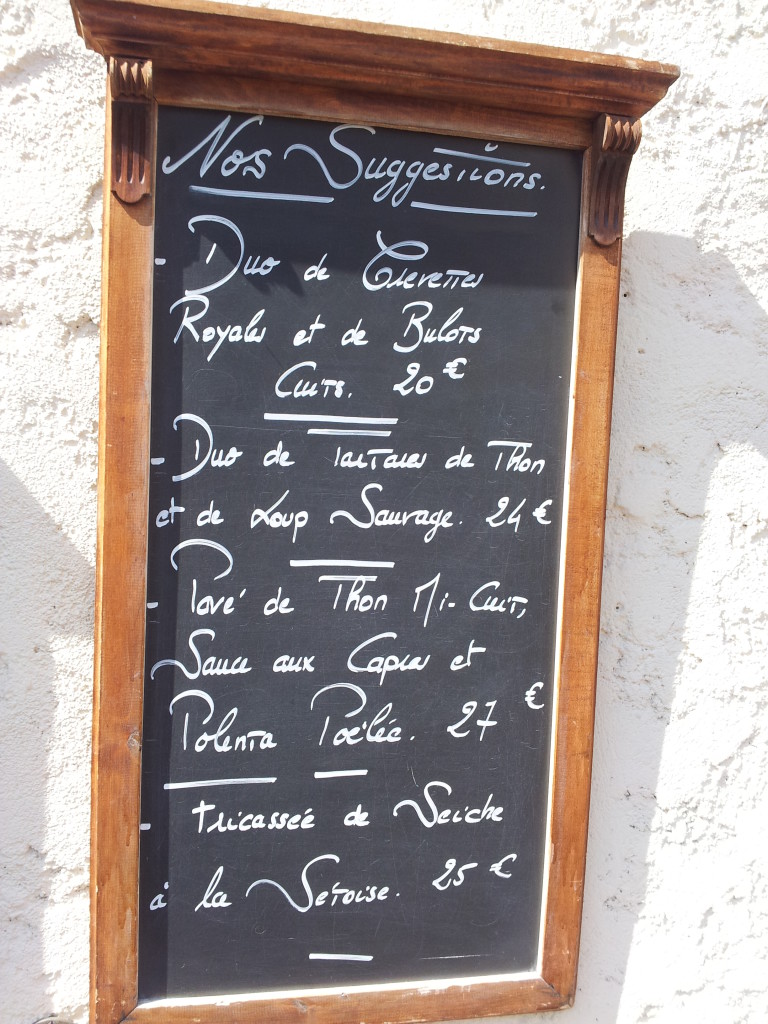 Nos Suggestions.
- Duo de Crevettes
Royales et de Bulots
Cuits. 20 €
- Duo de Tartares de Thon
et de Loup Sauvage. 24 €
- Pavé de Thon Mi-Cuit,
Sauce aux Capres et
Polenta Poëlée. 27 €
- Fricasseé de Seiche
à la Setoise. 25 €